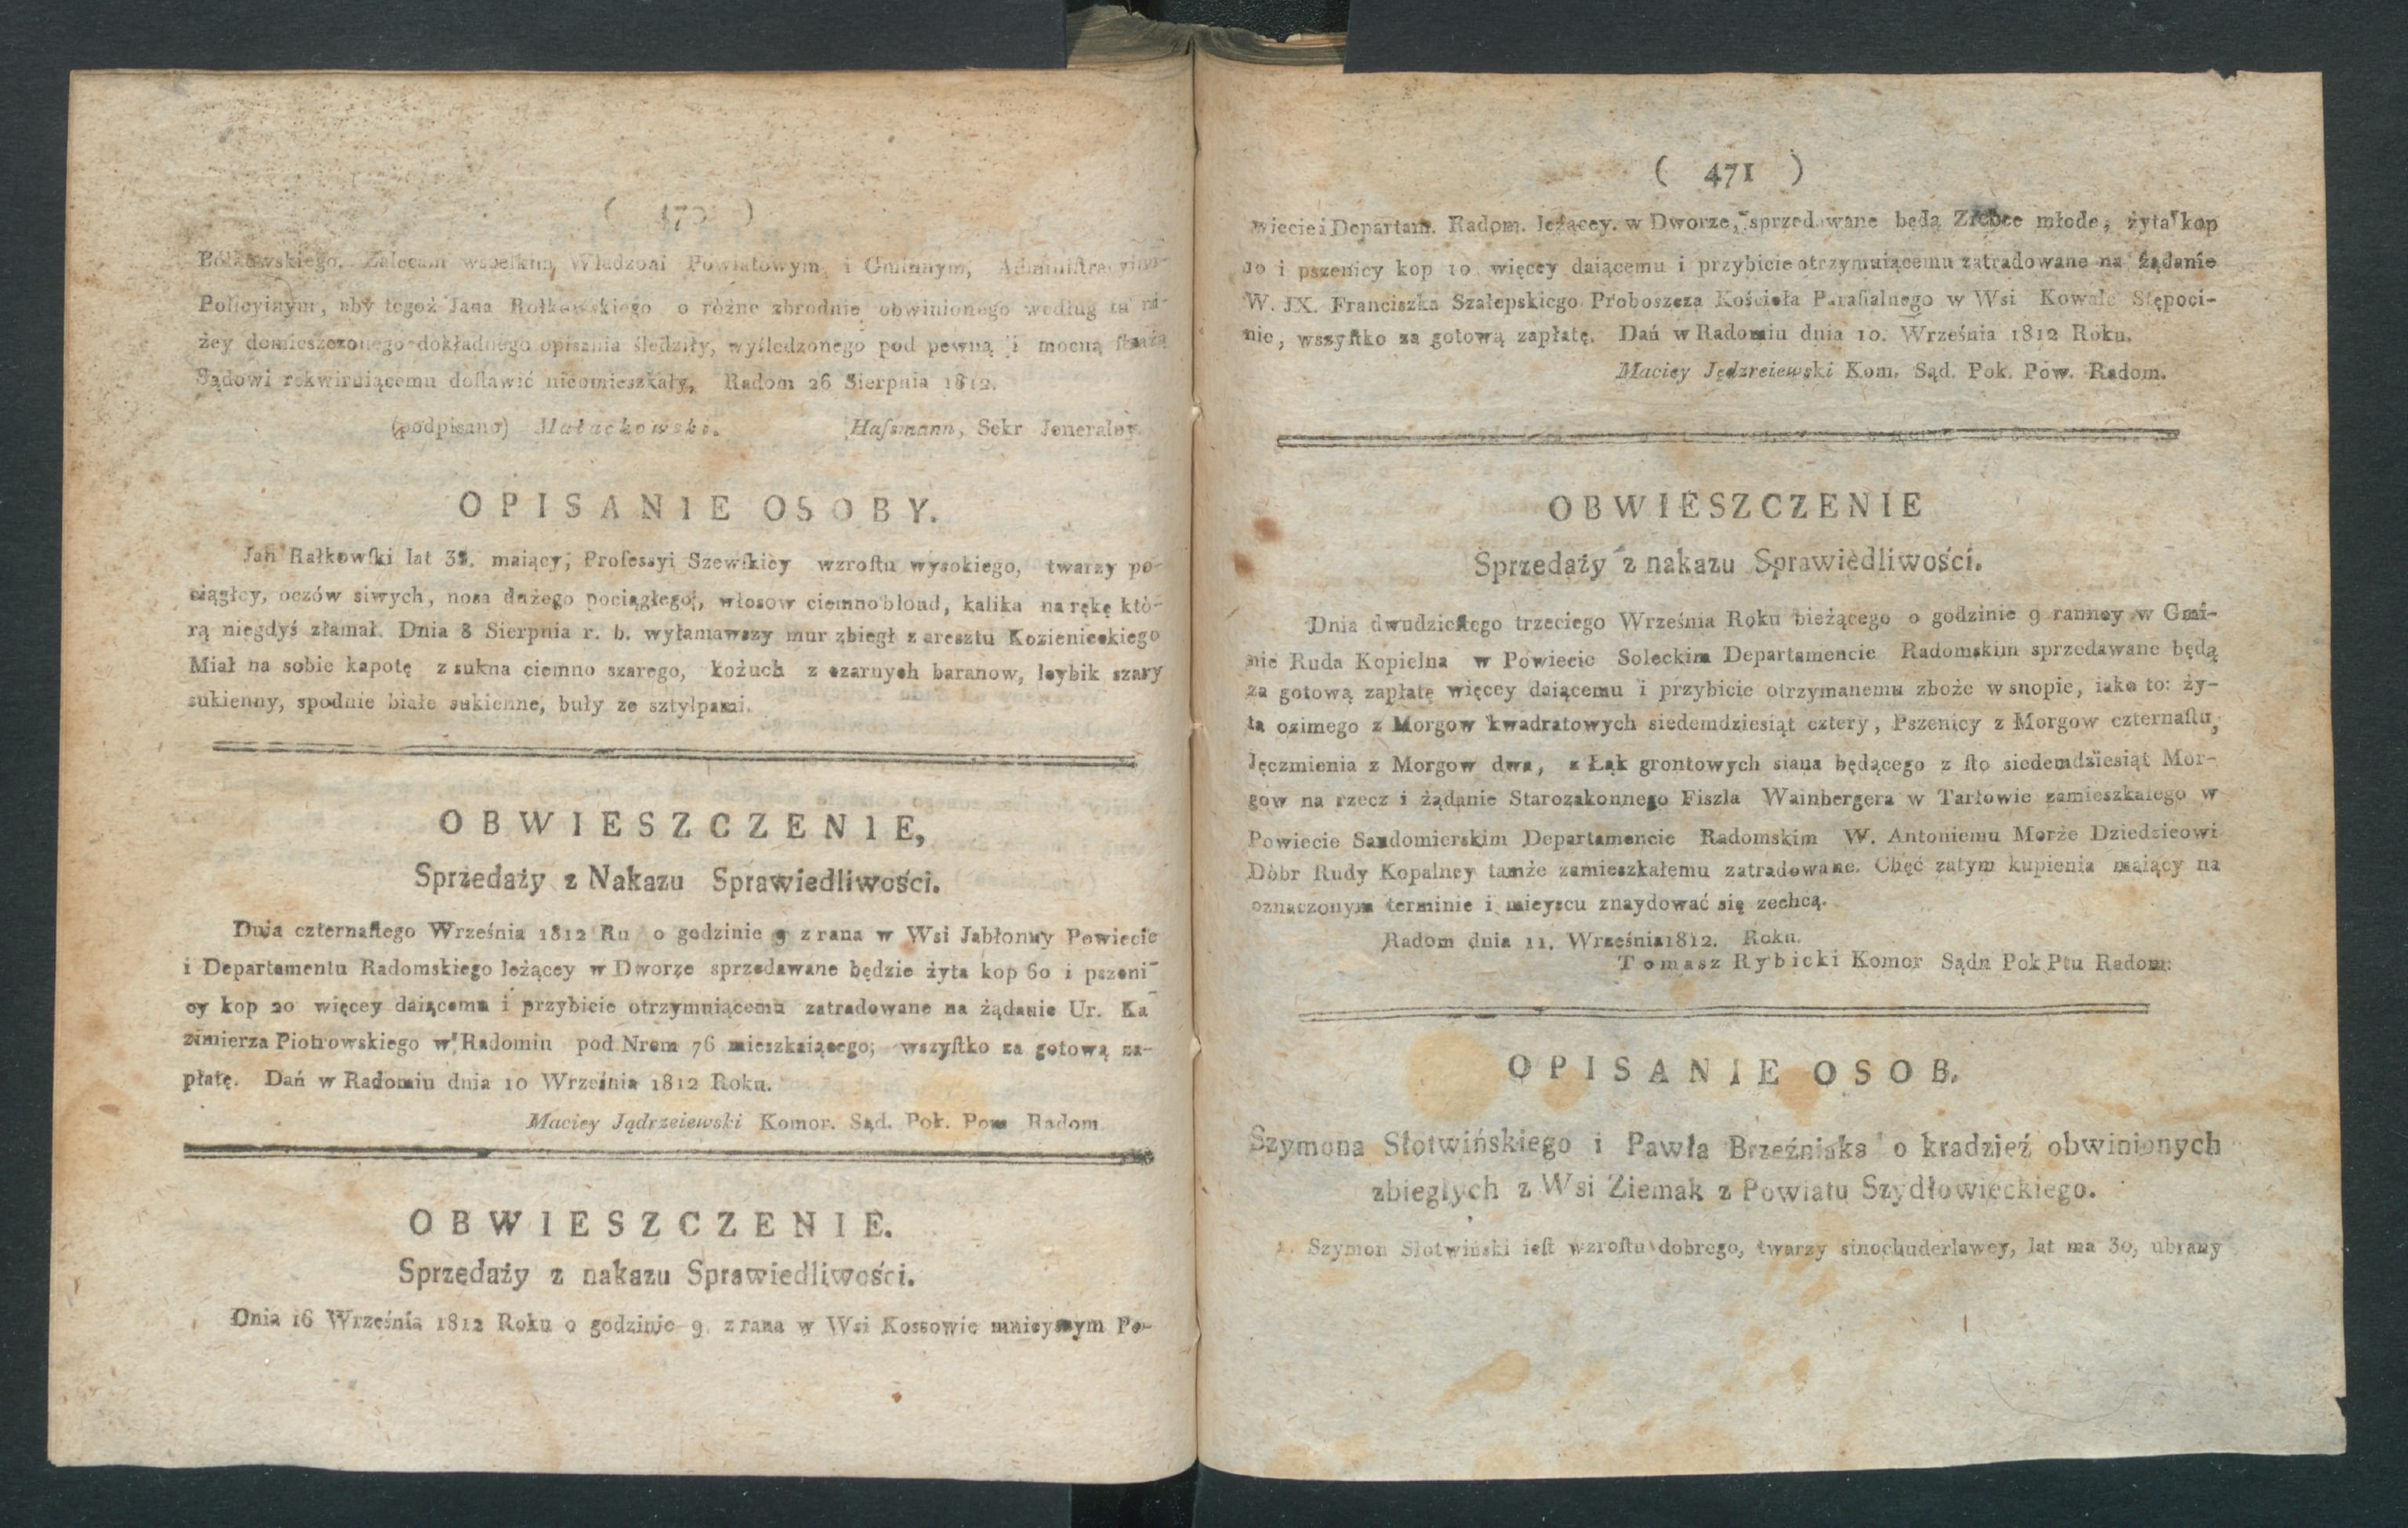 ( 470 )
Zalecam wszelkim Władzom Powiatowym i Gminnym,
Policyinym, aby tegoż Jana Rołkowskiego o różne zbrodnie obwinionego według tu ni-
żey domieszczonego dokładnego opisania śledziły, wyśledzonego pod pewną i mocną strażą
Sądowi rekwiruiącemu dostawić nieomieszkały, Radom 26 Sierpnia 1812.
(podpisano) Małachowski. Hassmann, Sekr Jeneralny.
OPISANIE OSOBY.
Jan Rałkowski lat maiący, Professyi Szewskiey wzrostu wysokiego, twarzy po-
ciągłey, oczów siwych, nosa dużego pociągłego, włosow ciemno blond, kalika na rękę któ-
rą niegdyś złamał. Dnia 8 Sierpnia r. b. wyłamawszy mur zbiegł z aresztu Kozienieckiego
Miał na sobie kapotę z sukna ciemno szarego, kożuch z czarnych baranow, leybik szary
sukienny, spodnie białe sukienne, buły ze sztylpami.
OBWIESZCZENIE,
Sprzedaży z Nakazu Sprawiedliwości.
Dnia czternastego Września 1812 Ru o godzinie 9 z rana w Wsi Jabłonny Powiecie
i Departamentu Radomskiego leżącey w Dworze sprzedawane będzie żyta kop 60 i pszeni-
cy kop 20 więcey daiącemu i przybicie otrzymuiącemu zatradowane na żądanie Ur. Ka-
zimierza Piotrowskiego w Radomiu pod Nrem 76 mieszkaiącego; wszystko za gotową za-
płatę. Dań w Radomiu dnia 10 Września 1812 Roku.
Maciey Jądrzeiewski Komor. Sąd. Pok. Pow Radom.
OBWIESZCZENIE.
Sprzedaży z nakazu Sprawiedliwości.
Dnia 16 Września 1812 Roku o godzinie 9. z rana w Wsi Kossowie mnieyszym Po-
( 471 )
wiecie i Departam. Radom. leżącey. w Dworze, sprzedawane będą Zrebce młode, żyta kop
10 i pszenicy kop 10 więcey daiącemu i przybicie otrzymuiącemu zatradowane na żądanie
W. JX. Franciszka Szalepskiego Proboszcza Kościoła Parafialnego w Wsi Kowale Stępoci-
nie, wszystko za gotową zapłatę. Dań w Radomiu dnia 10. Września 1812 Roku.
Maciey Jędzreiewski Kom. Sąd. Pok. Pow. Radom.
OBWIESZCZENIE
Sprzedaży z nakazu Sprawiedliwości.
Dnia dwudziestego trzeciego Września Roku bieżącego o godzinie 9 ranney w Gmi-
nie Ruda Kopielna w Powiecie Soleckim Departamencie Radomskim sprzedawane będą
za gotową zapłatę więcey daiącemu i przybicie otrzymanemu zboże w snopie, iako to: ży-
ta ozimego z Morgow kwadratowych siedemdziesiąt cztery, Pszenicy z Morgow czternastu,
Jęczmienia z Morgow dwa, z Łąk grontowych siana będącego z sto siedemdziesiąt Mor-
gow na rzecz i żądanie Starozakonnego Fiszla Wainbergera w Tarłowie zamieszkałego w
Powiecie Sandomierskim Departamencie Radomskim W. Antoniemu Morże Dziedzicowi
Dóbr Rudy Kopalney tamże zamieszkałemu zatradowane. Chęć zatym kupienia maiący na
oznaczonym terminie i mieyscu znaydować się zechcą.
Radom dnia 11. Września 1812. Roku.
Tomasz Rybicki Komor Sądu Pok Ptu Radom:
OPISANIE OSOB.
Szymona Słotwińskiego i Pawła Brzeźniaka o kradzież obwinionych
zbiegłych z Wsi Ziemak z Powiatu Szydłowieckiego.
Szymon Słotwiński iest wzrostu dobrego, twarzy sinochuderlawey, lat ma 30, ubrany